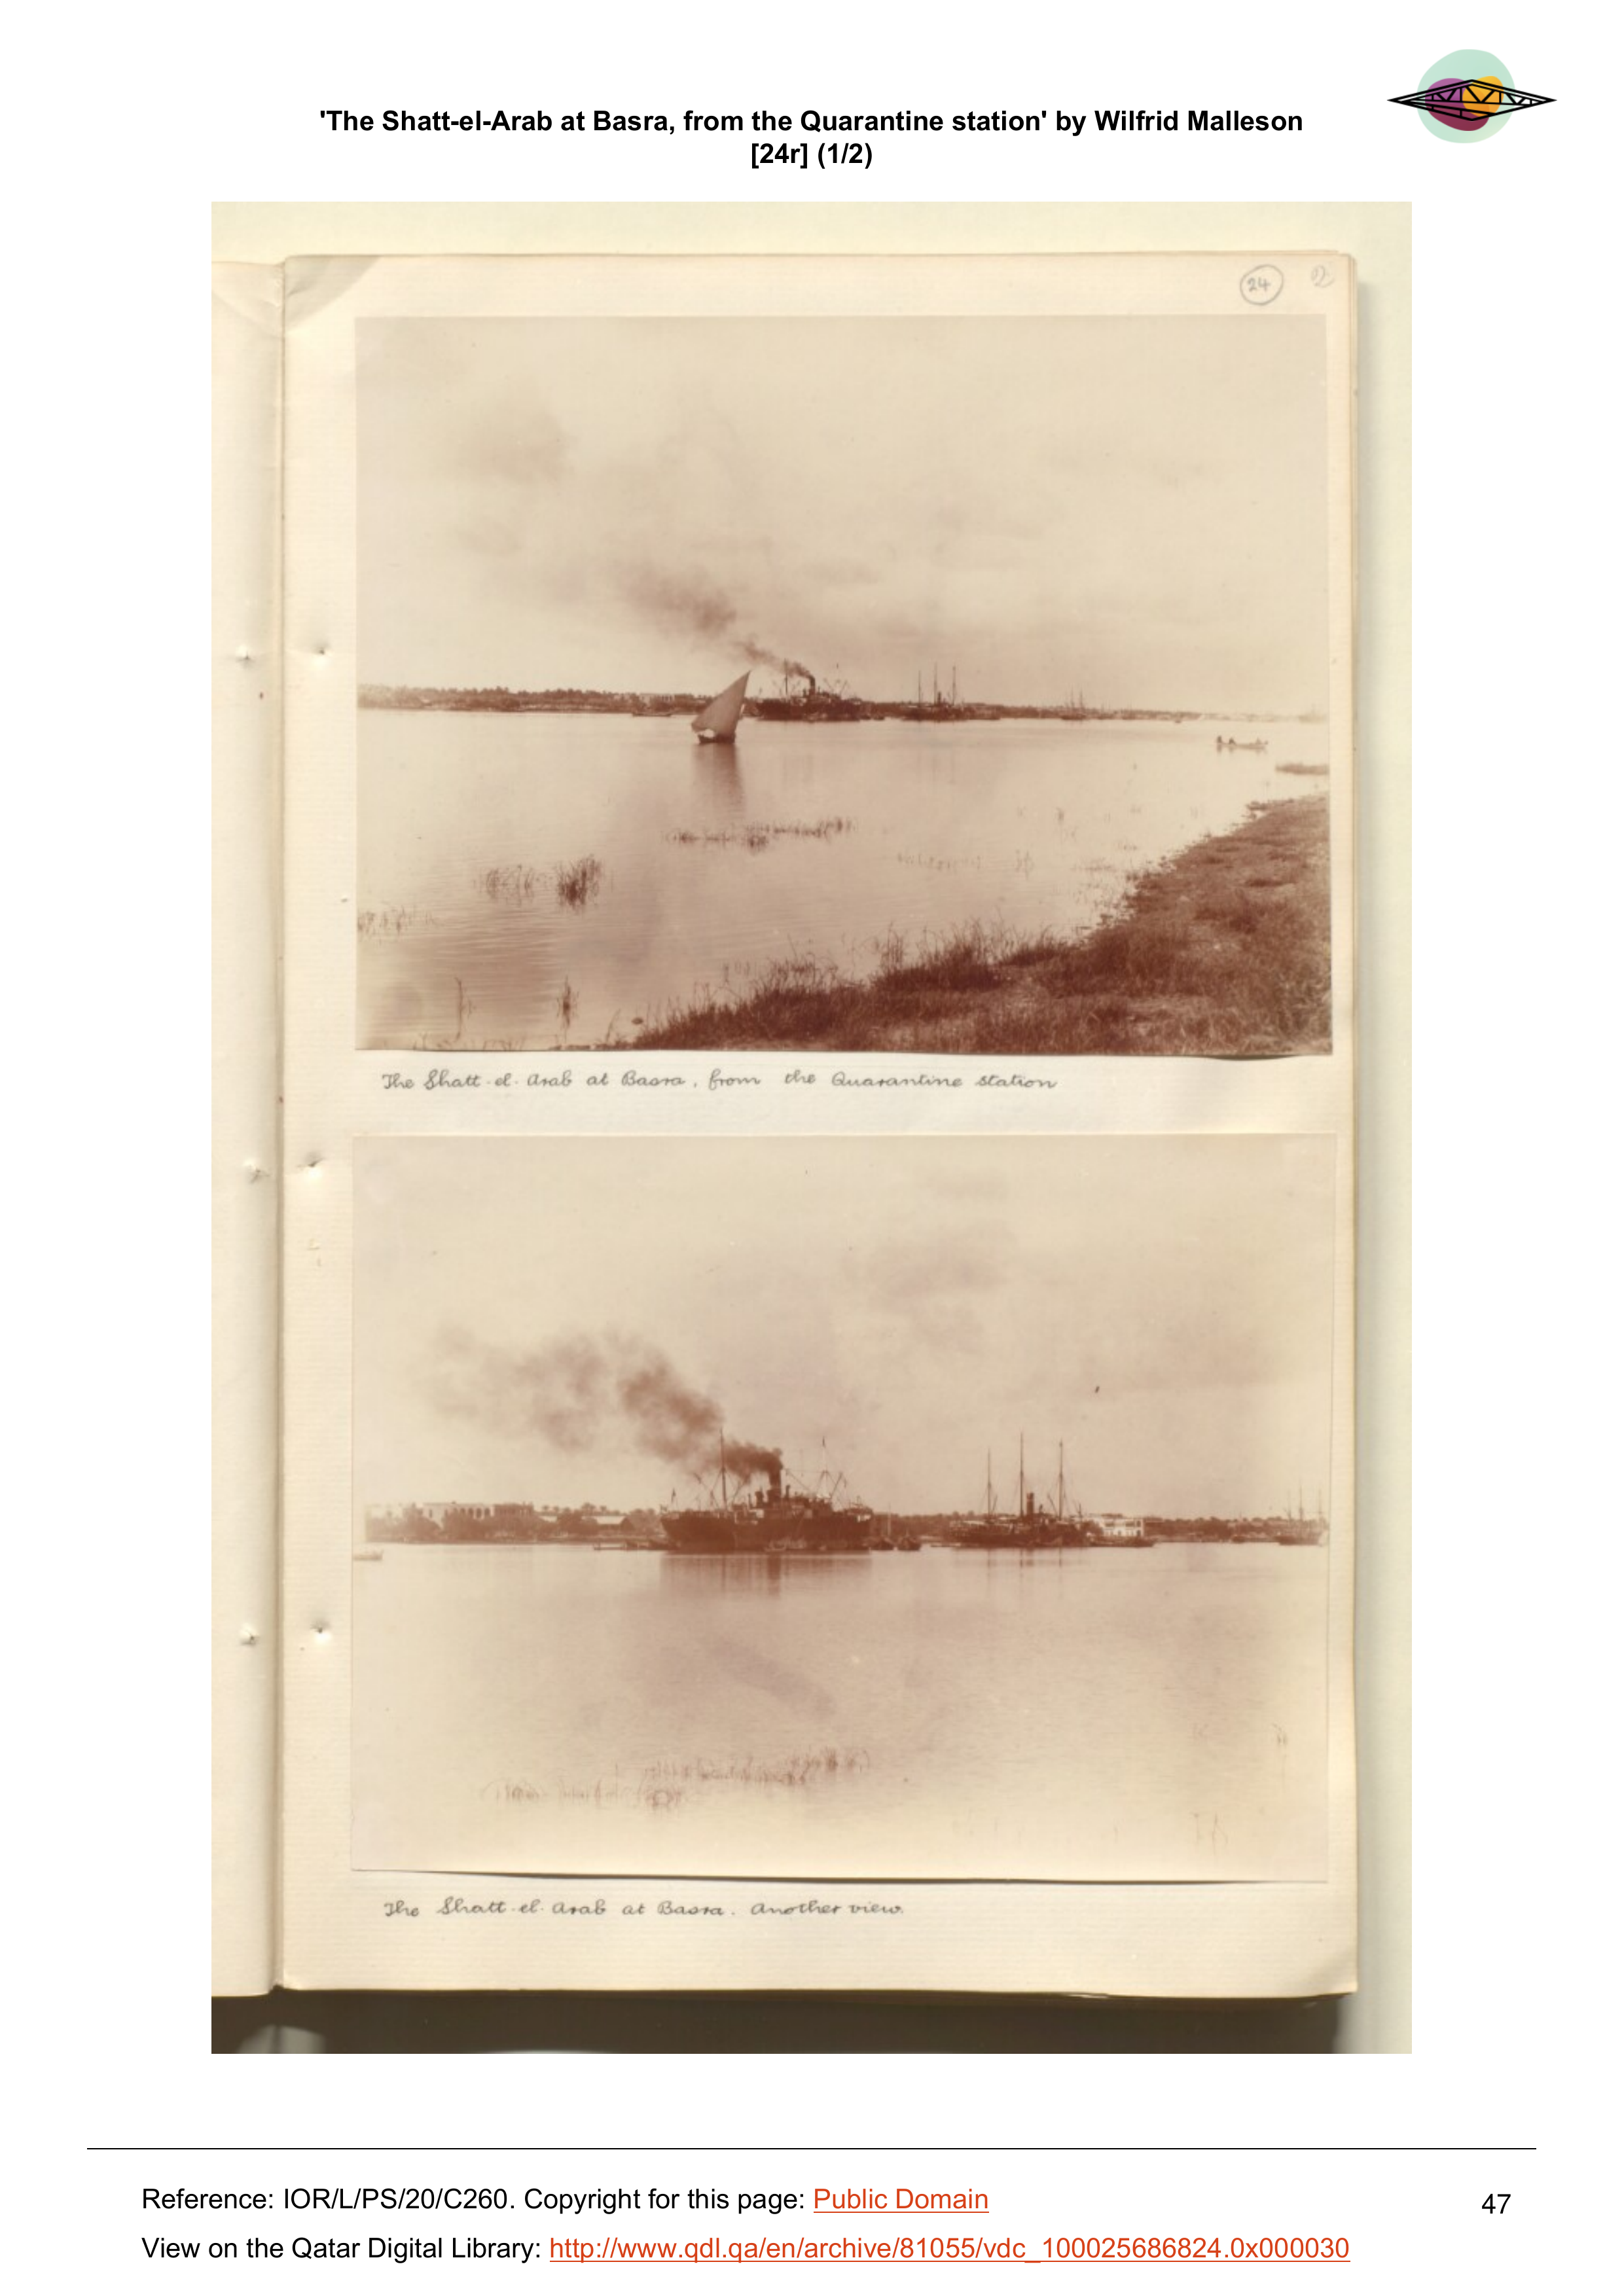 'The Shatt-el-Arab at Basra, from the Quarantine station' by Wilfrid Malleson
[24r] (1/2)
24
The Shatt-el-Arab at Basra, from the Quarantine station
The Shatt-el-Arab at Basra. Another view.
Reference: IOR/L/PS/20/C260. Copyright for this page: Public Domain
47
View on the Qatar Digital Library: http://www.qdl.qa/en/archive/81055/vdc_100025686824.0x000030